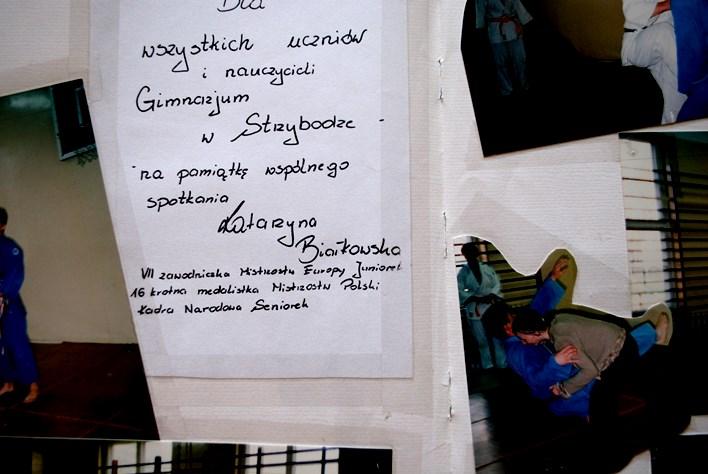 Dla
wszystkich uczniów
i nauczycieli
Gimnazjum
w Strzybodze -
-na pamiątkę wspólnego
spotkania
Katarzyna
Białkowska
VII zawodniczka Mistrzostw Europy Juniorek
16 krotna medalistka Mistrzostw Polski
Kadra Narodowa Seniorek